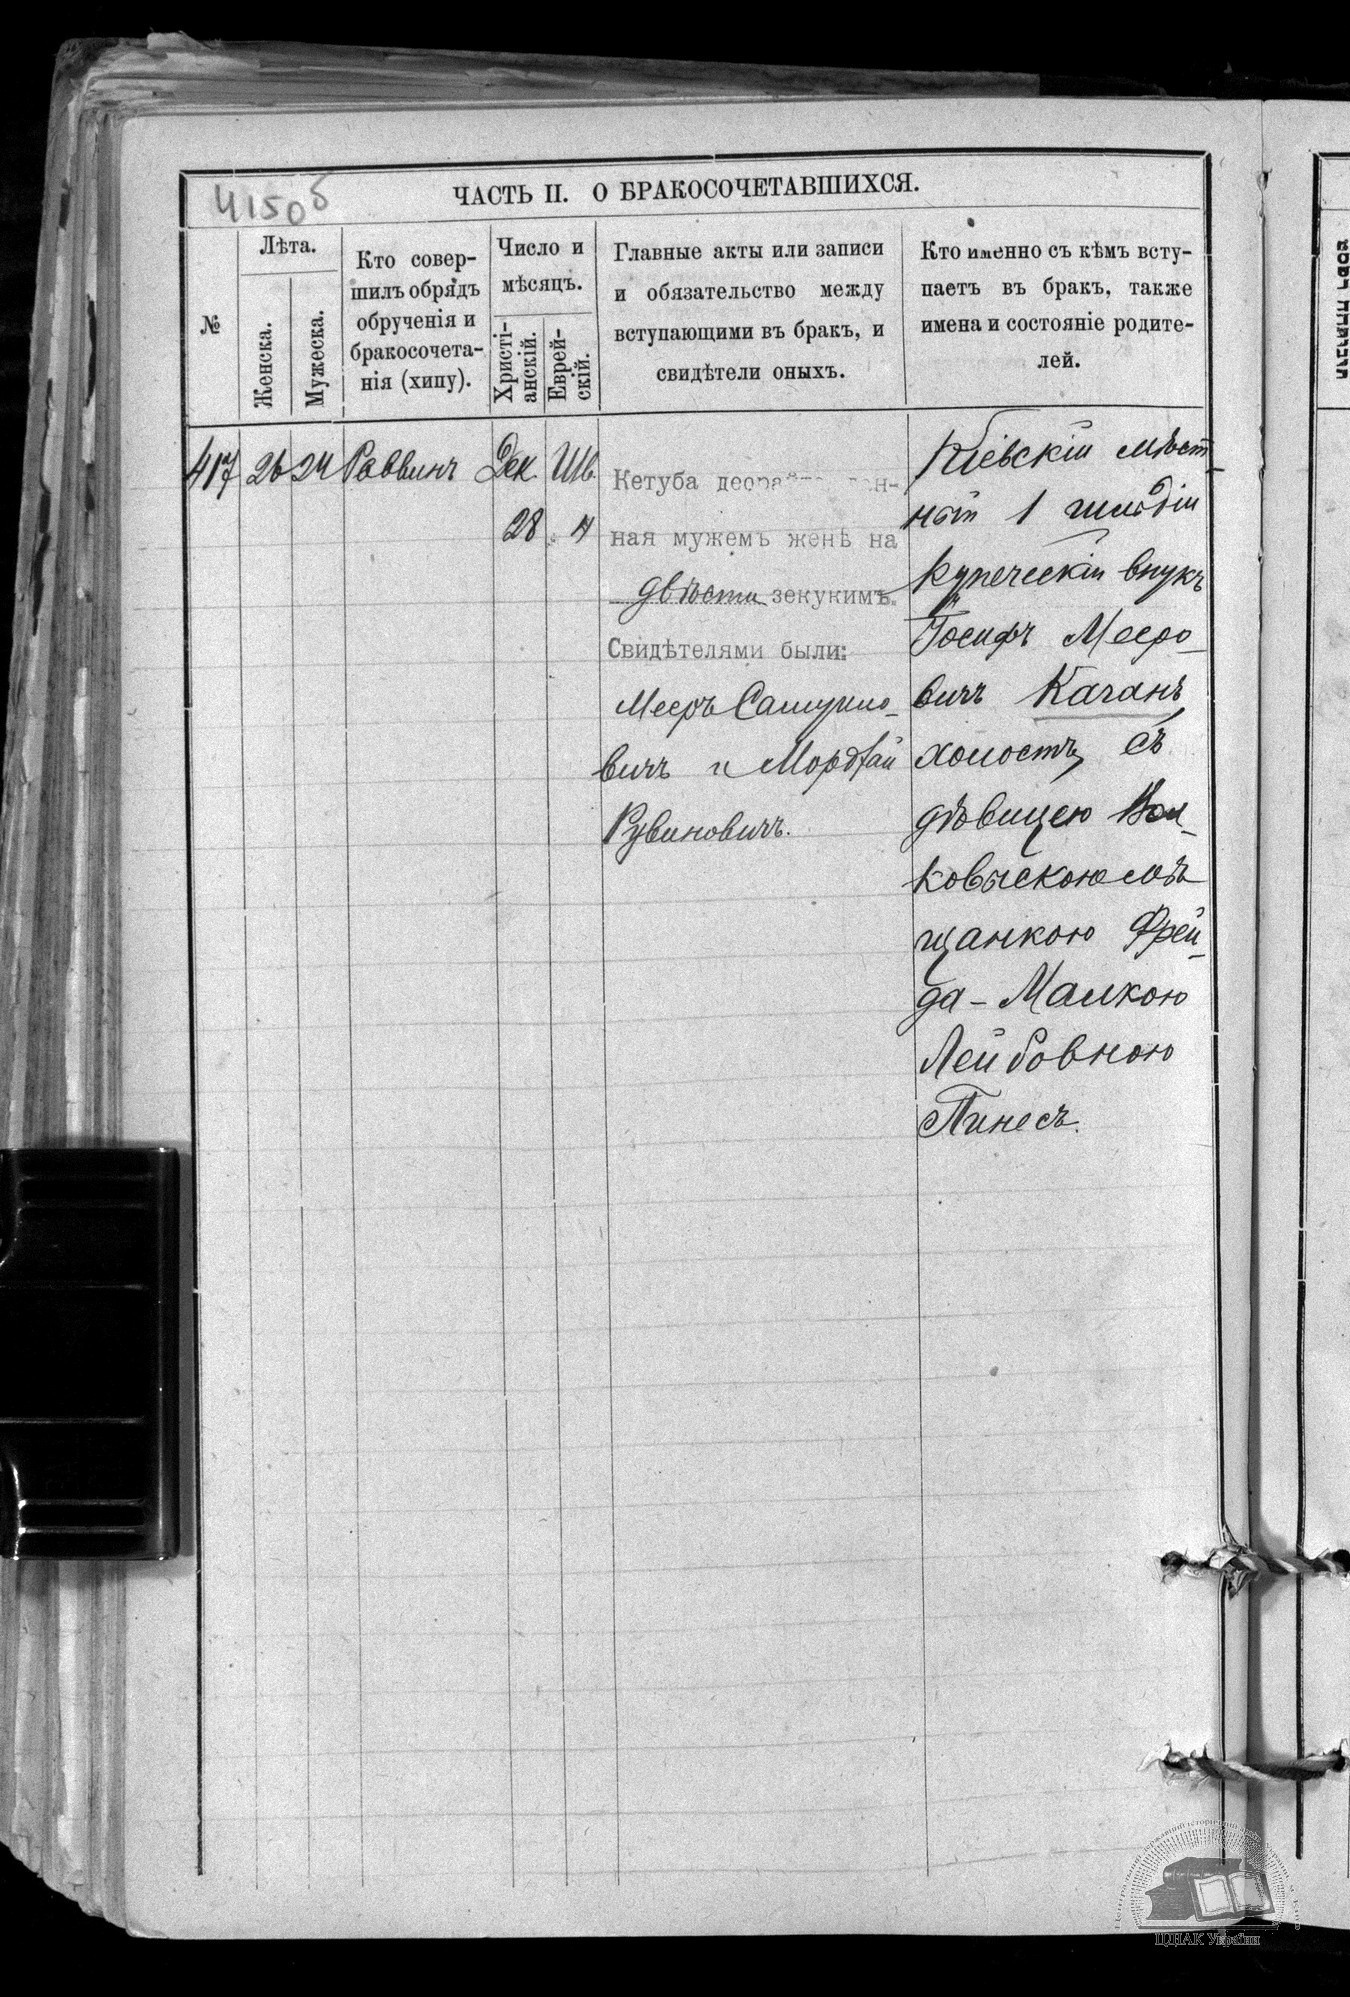 4150б
ЧАСТЬ II. О БРАКОСОЧЕТАВШИХСЯ.
№
Лѣта.
Женска.
Мужеска.
Кто совер-
шилъ обрядъ
обрученія и
бракосочета-
нія (хипу).
Число и
мѣсяцъ.
Христі-
анскій.
Еврей-
скій.
Главные акты или записи
и обязательство между
вступающими въ бракъ, и
свидѣтели оныхъ.
Кто именно съ кѣмъ всту-
паетъ въ бракъ, также
имена и состояніе родите-
лей.
417
26
24
Раввинъ
Дек.
28
Шв.
Кетуба деорайта дан-
ная мужемъ женѣ на
двѣсти зекукимъ.
Свидѣтелями были:
Мееръ Самуило-
вичъ и Мордхай
Рувиновичъ.
Кіевскій мѣст-
ный 1 гильдіи
купеческій внукъ
Іосифъ Мееро-
вичъ Каганъ
холостъ, съ
дѣвицею Вол-
ковыскою мѣ
щанкою Фрей-
да-Малкою
Лейбовною
Пинесъ.
ЦДІАК України